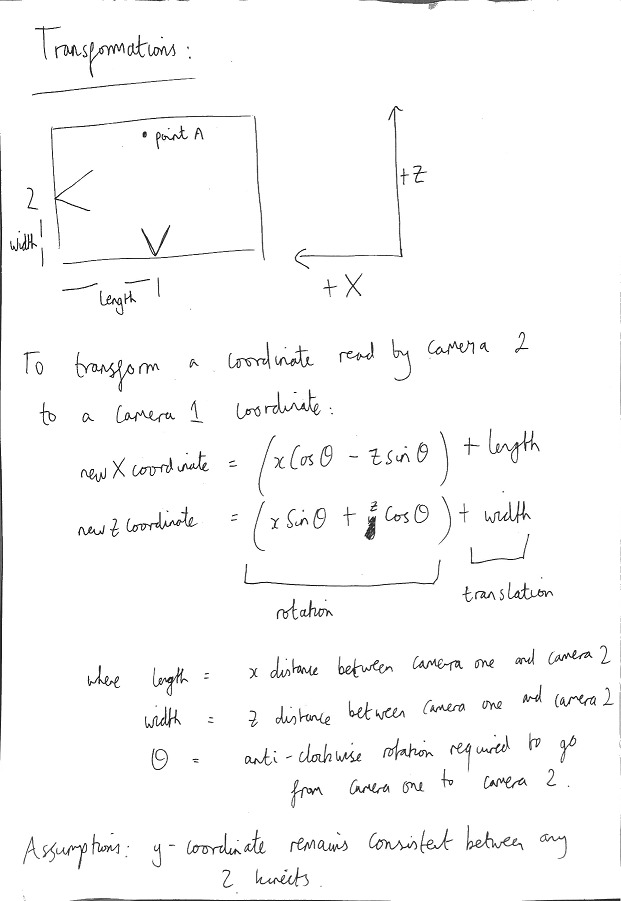 Transformations:
• point A
+Z
2
width
length
1
+ X
To transform a coordinate read by camera 2
to a camera 1 coordinate:
new X coordinate = (x Cos θ - z sin θ) + length
new z coordinate = (x Sin θ + z Cos θ) + width
rotation
translation
where length = x distance between camera one and camera 2
width = z distance between camera one and camera 2
θ = anti-clockwise rotation required to go
from camera one to camera 2.
Assumptions: y-coordinate remains consistent between any
2 kinects.